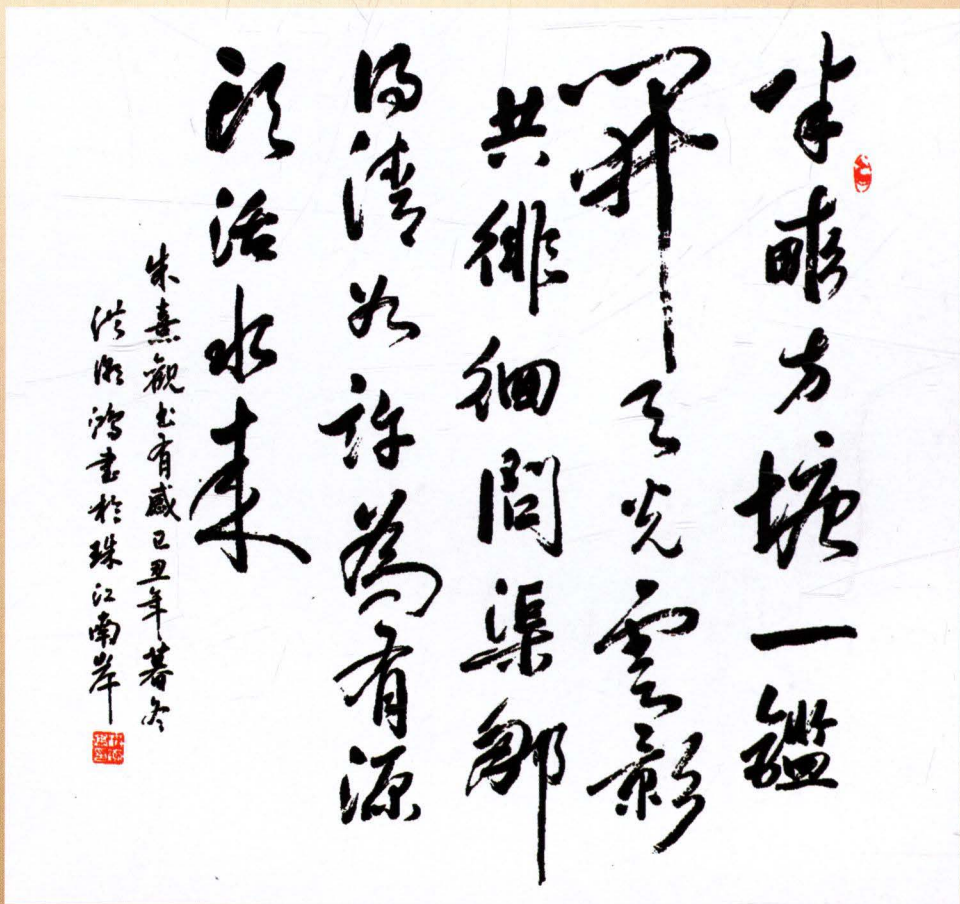 半畝方塘一鑑
開天光雲影
共徘徊問渠那
得清如許為有源
頭活水來
朱熹觀书有感己丑年暮冬
洪鴻書於珠江南岸